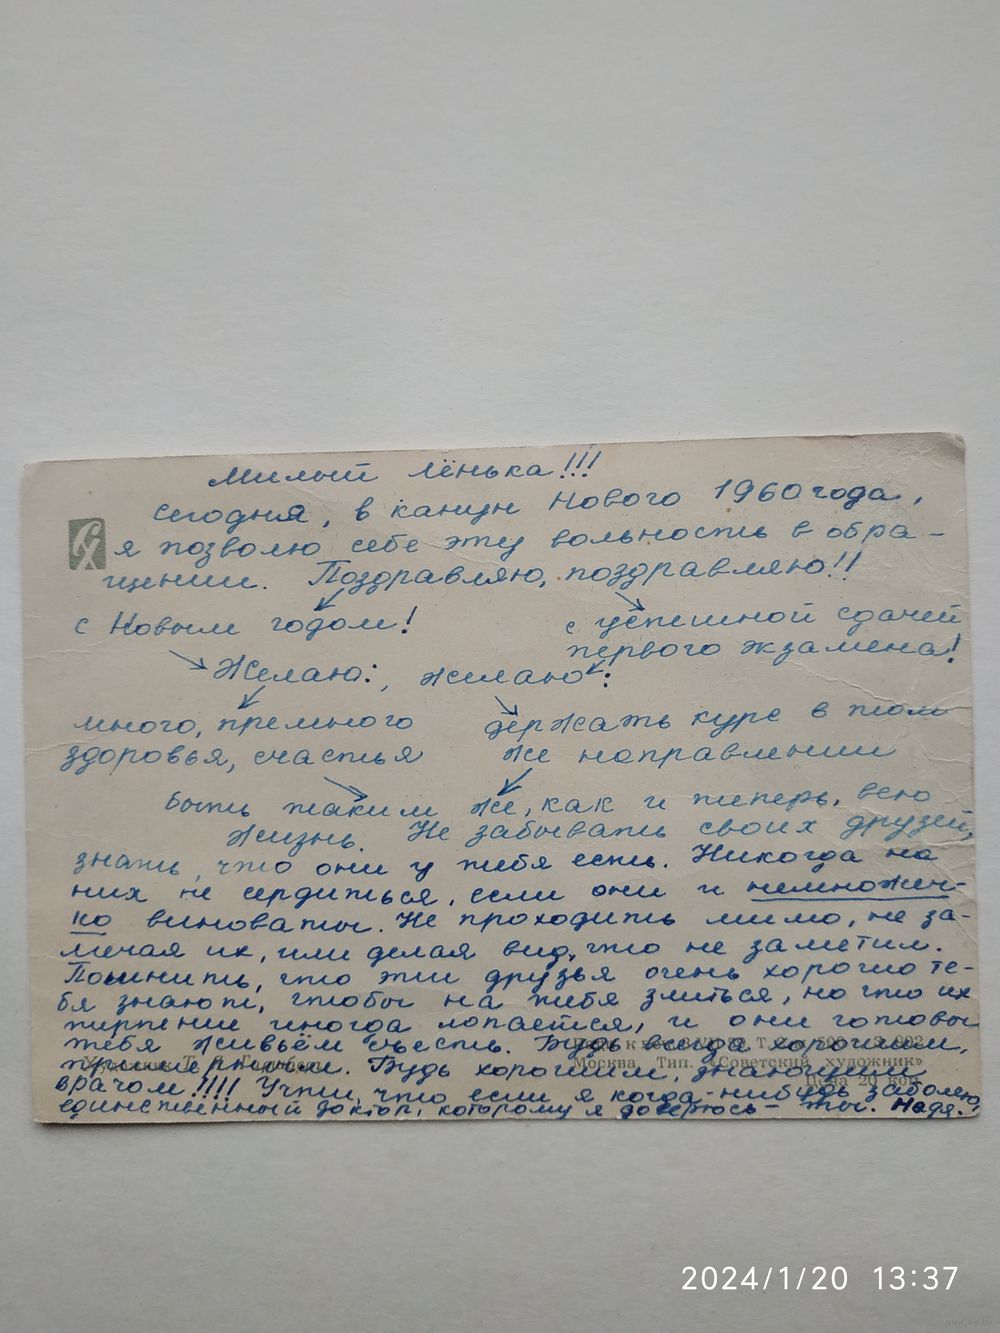 Милый Лёнька!!!
Сегодня, в канун Нового 1960 года,
я позволю себе эту вольность в обра-
щении. Поздравляю, поздравляю!!
с Новым годом!
с успешной сдачей
первого экзамена!
Желаю:, желаю:
много, премного
здоровья, счастья
держать курс в том
же направлении
быть таким же, как и теперь, всю
жизнь. Не забывать своих друзей,
знать, что они у тебя есть. Никогда на
них не сердиться, если они и немножеч-
ко виноваты. Не проходить мимо, не за-
мечая их, или делая вид, что не заметил.
Помнить, что эти друзья очень хорошо те-
бя знают, чтобы на тебя злиться, но что их
терпение иногда лопается, и они готовы
тебя живьём съесть. Будь всегда хорошим,
примерным. Будь хорошим, знающим
врачом!!!! Учти, что если я когда-нибудь заболею,
единственный доктор, которому я доверюсь – ты. Надя.
Художник Т.
Москва, Тип. «Советский художник»
Цена 20 коп.
2024/1/20 13:37